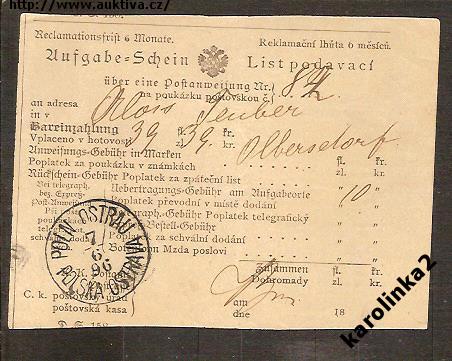 http://www.auktiva.cz/
Reclamationsfrist 6 Monate.
Reklamační lhůta 6 měsíců.
Aufgabe-Schein
List podavací
über eine Postanweisung Nr.
na poukázku poštovskou č.
84
an adresa
Alois Teuber
in v
Olbersdorf
Bareinzahlung
Vplaceno v hotovosti
39 fl. zl. 39 kr. kr.
Anweisungs-Gebühr in Marken
Poplatek za poukázku v známkách
fl. zl. kr. kr.
Rückschein-Gebühr Poplatek za zpáteční list
Bei telegraph.
bez. Express-
Post-Anweisung
Uebertragungs-Gebühr am Aufgabeorte
Poplatek převodní v místě dodání
" " 10 "
Při
poukázkách
-Gebühr Poplatek telegrafický
-Bestell-Gebühr
Poplatek za schvální dodání
za schvální dodání
Botenlohn Mzda poslovi
POLN. OSTRAU
7
6
96
POLSKÁ OSTRAVA
Zusammen
Dohromady
fl. zl. kr. kr.
K. k. Postamt
C. k. poštovský úřad
poštovská kasa
am
dne
18
D. S. 158
karolinka2